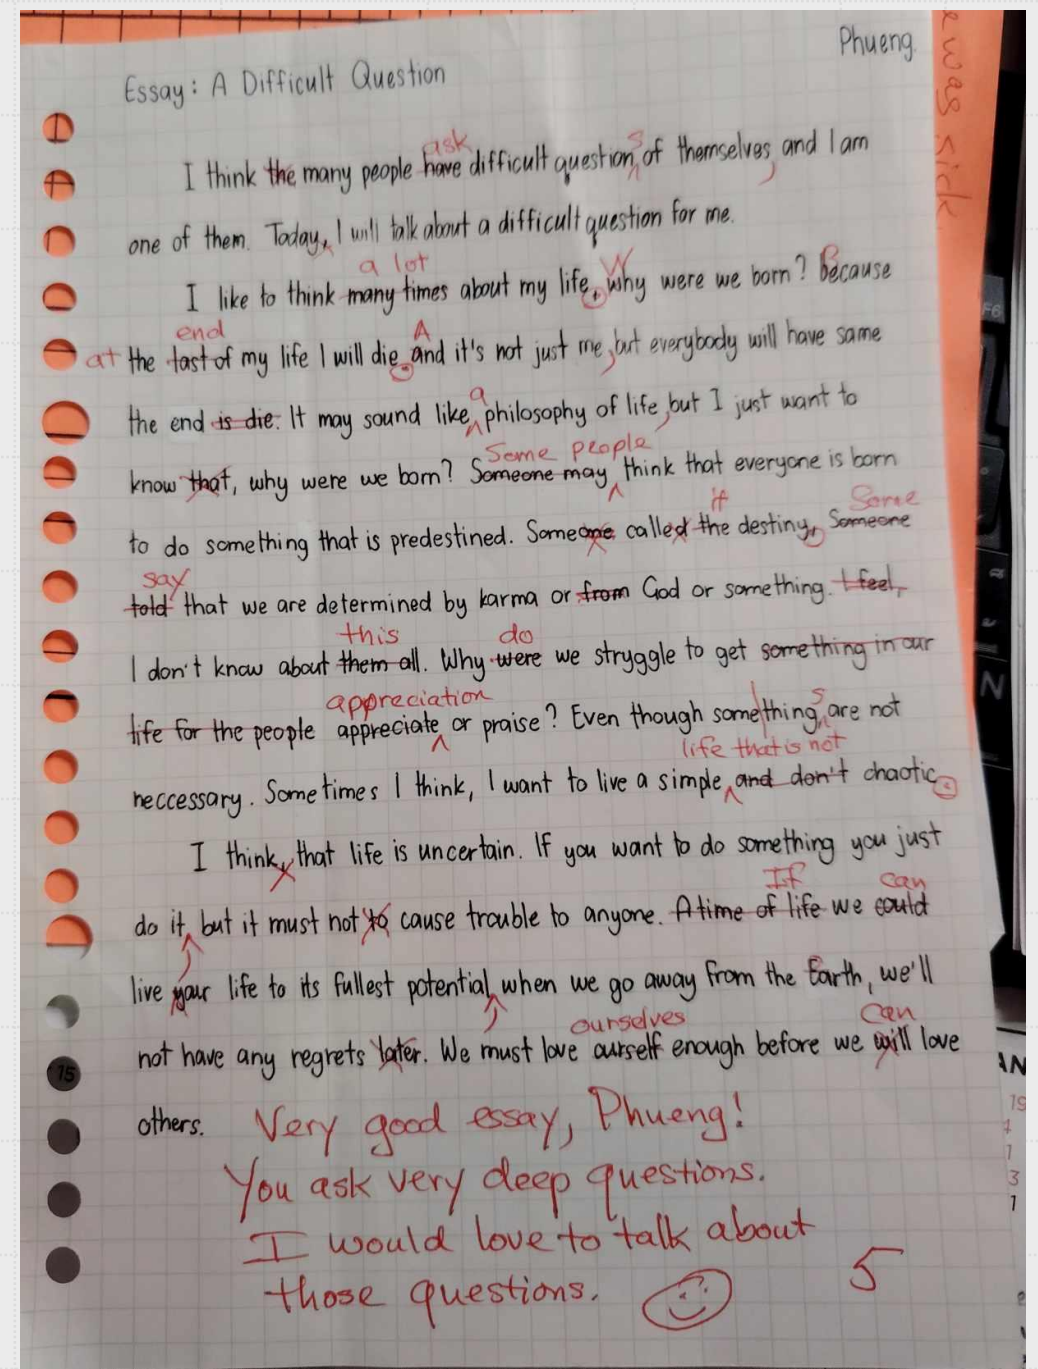 Phueng.
Essay: A Difficult Question
ask s
I think the many people have difficult question, of themselves, and I am
one of them. Today, I will talk about a difficult question for me.
a lot W B
I like to think many times about my life. why were we born? Because
end A
at the last of my life I will die. and it's not just me, but everybody will have same
a
the end is die. It may sound like philosophy of life, but I just want to
Some people
know that, why were we born? Someone may think that everyone is born
it Some
to do something that is predestined. Someone called the destiny, Someone
say
told that we are determined by karma or from God or something. I feel,
this do
I don't know about them all. Why were we stryggle to get something in our
appreciation s
life for the people appreciate or praise? Even though something, are not
life that is not
neccessary. Sometimes I think, I want to live a simple and don't chaotic.
I think, that life is uncertain. If you want to do something you just
If can
do it, but it must not to cause trouble to anyone. A time of life we could
live your life to its fullest potential, when we go away from the Earth, we'll
ourselves can
not have any regrets later. We must love ourself enough before we will love
others. Very good essay, Phueng!
You ask very deep questions.
I would love to talk about
those questions.
5
e was sick
F6
N
75
AN
19
1
3
1